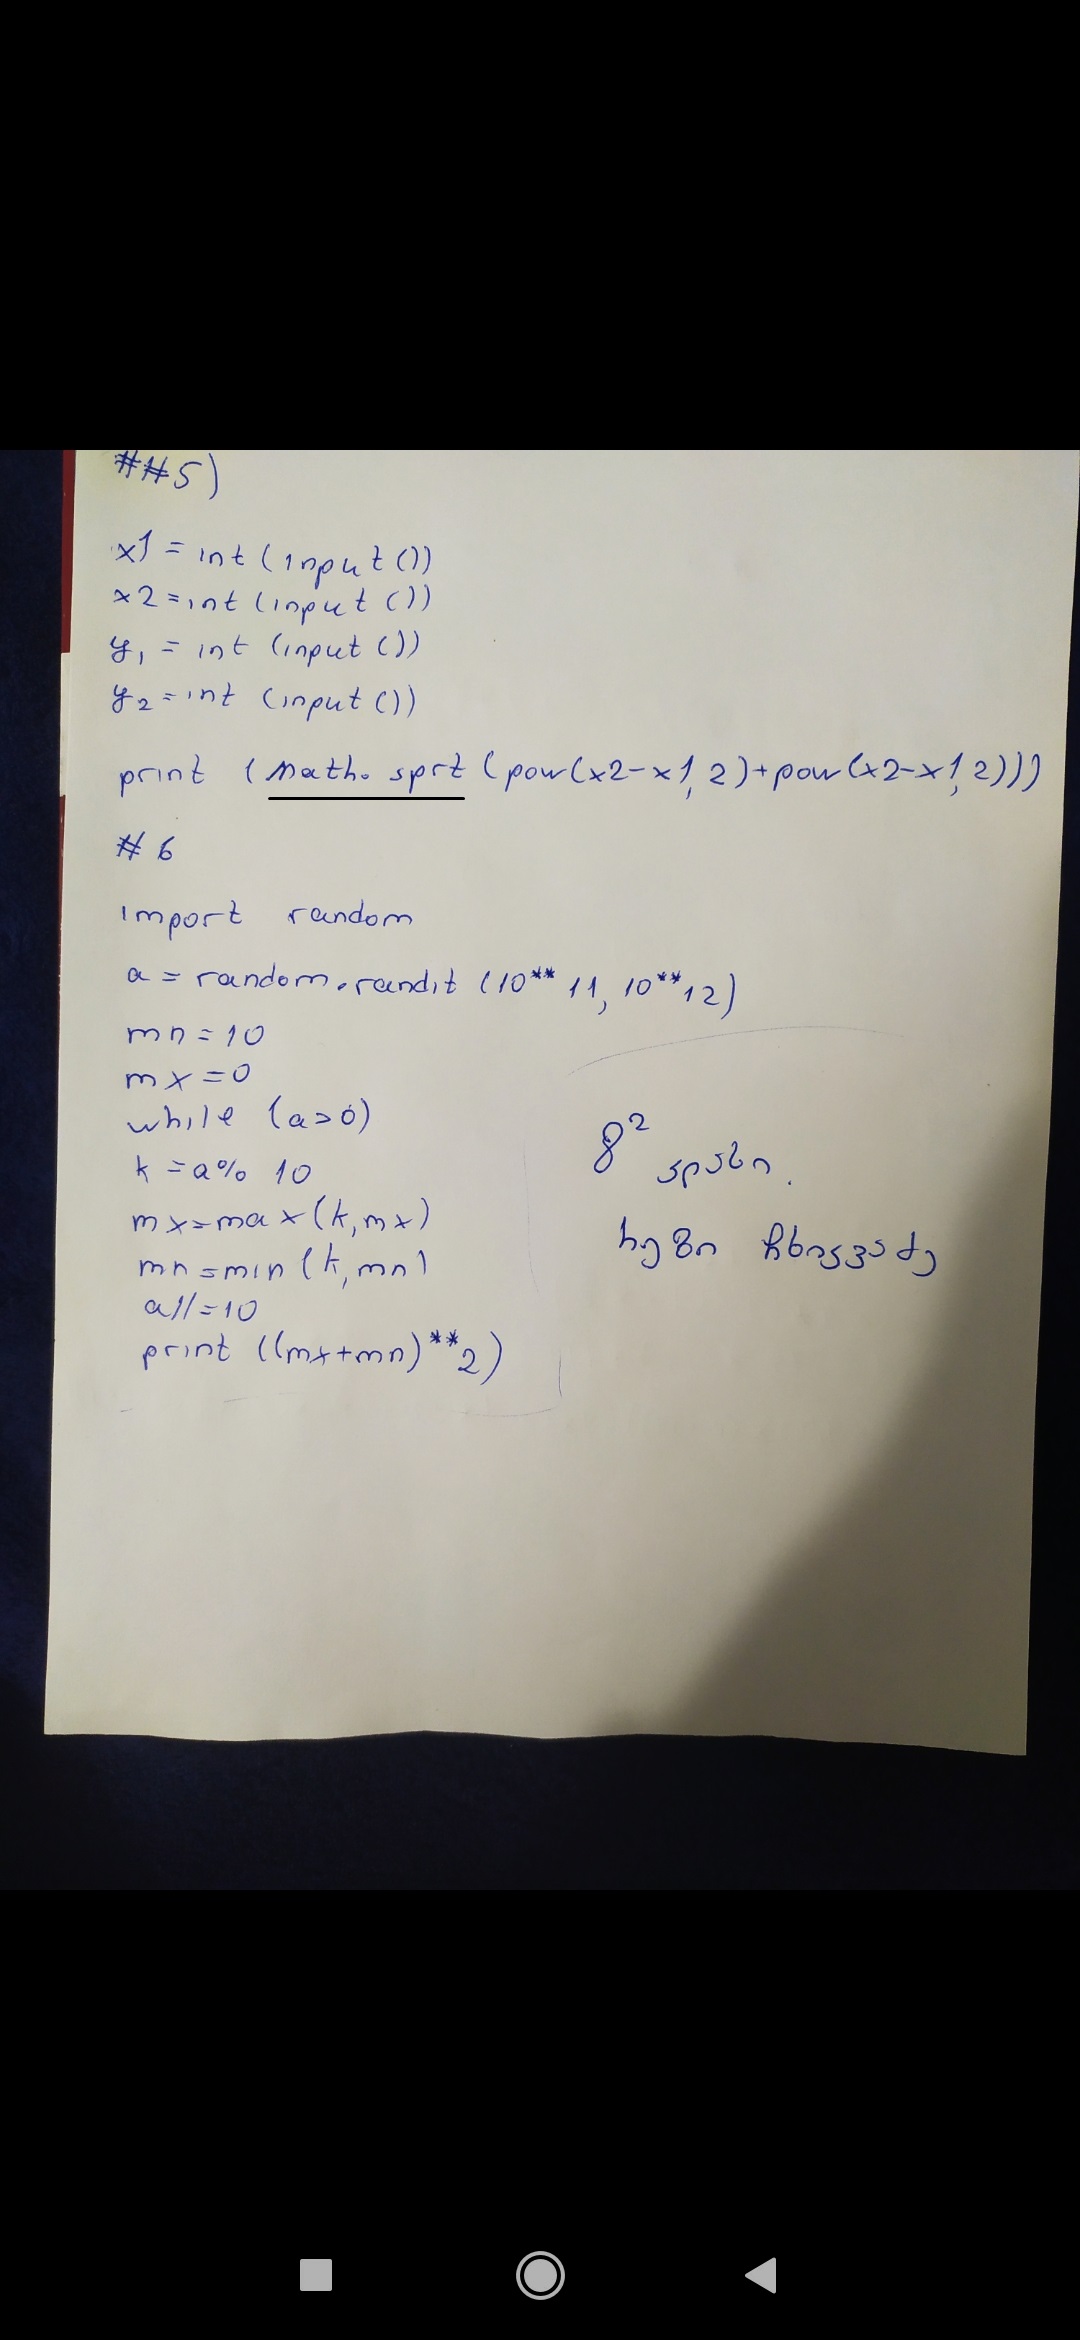 ##5)
x1 = int (input ())
x2 = int (input ())
y1 = int (input ())
y2 = int (input ())
print (math. sprt (pow(x2-x1, 2)+pow(x2-x1, 2)))
# 6
import random
a = random.randit (10** 11, 10**12)
mn = 10
mx = 0
while (a>0)
k = a% 10
mx=max(k,mx)
mn=min (k,mn)
a//=10
print ((mx+mn)**2)
8² კლასი.
ჩხიკვაძე